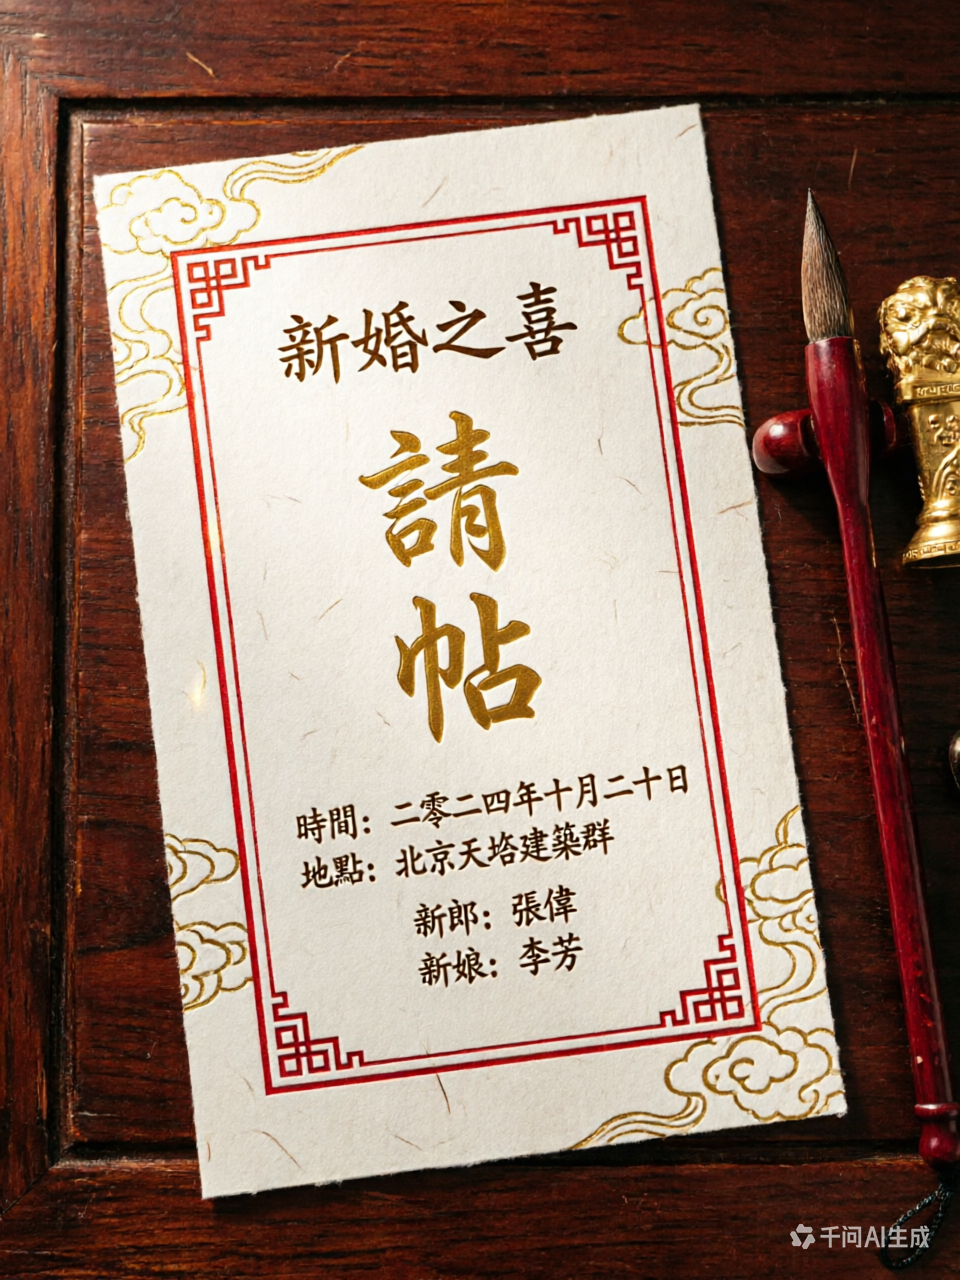 新婚之喜
請
帖
時間：二零二四年十月二十日
地點：北京天塔建築群
新郎：張偉
新娘：李芳
千问AI生成